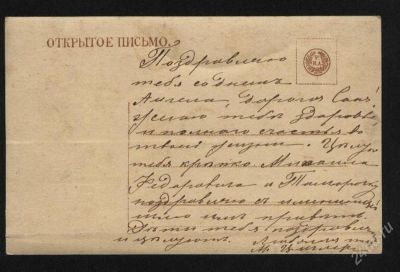 ОТКРЫТОЕ ПИСЬМО.
Поздравляю
тебя со днемъ
Ангела, дорогая
желаю тебѣ здоровья
и полнаго счастья во
твоей жизни. Цѣлую
тебя крѣпко. Михаила
Федоровича и Тамарочку
поздравляю съ
шлю имъ привѣтъ.
Дѣти тебя поздравляютъ
и цѣлуютъ. Любящая